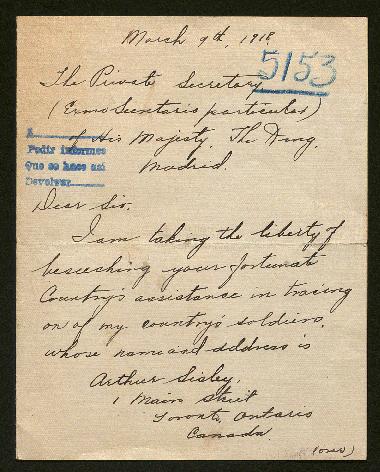 March 9th, 1918.
5153
The Private Secretary
(Exmo Secretario particular)
of His Majesty. The King.
Madrid.
A
Pedir informes
Que se hace asi
Devolver
Dear Sir.
I am taking the liberty of
beseeching your fortunate
Country's assistance in tracing
on of my country's soldiers,
whose name and address is
Arthur Sisley,
1 Main Street
Toronto, Ontario
Canada.
(over)